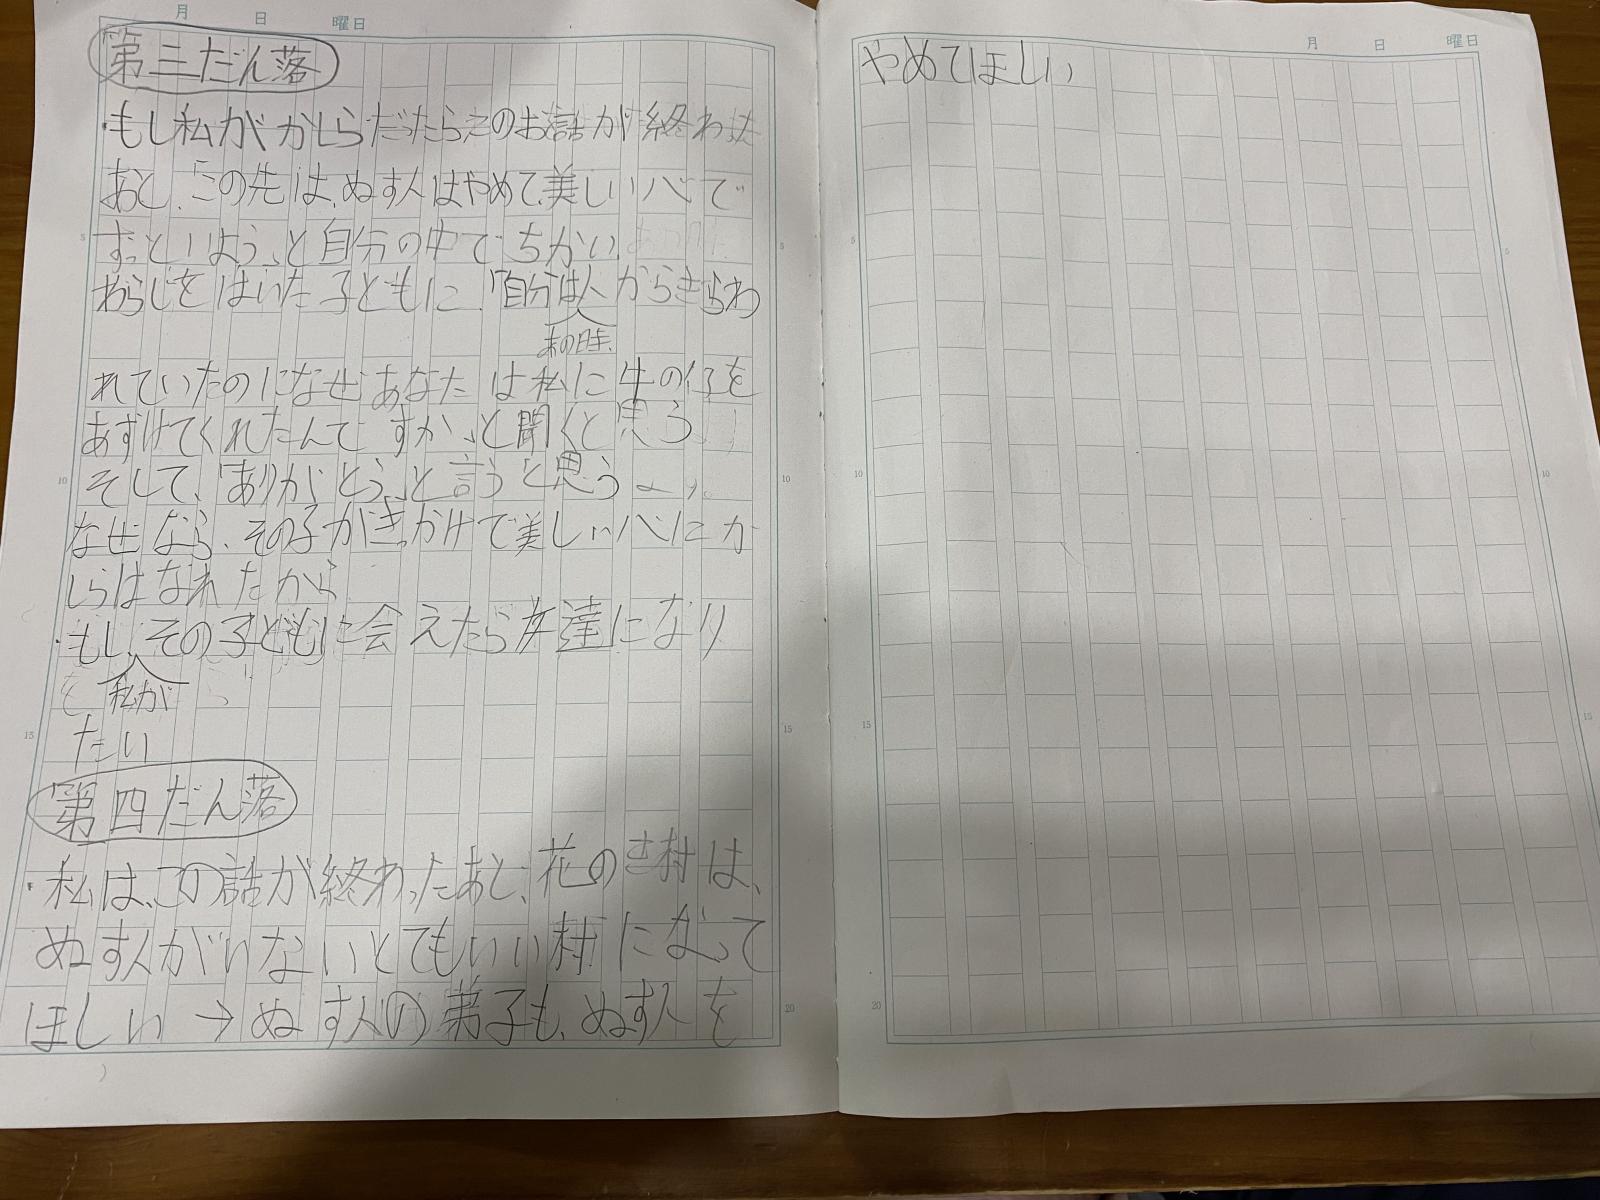 月 日 曜日
第三だん落
・もし私がかしらだったらこのお話が終わった
あと、「この先は、ぬす人はやめて、美しい心で
ずっといよう。」と自分の中でちかい
わらじをはいた子どもに、「自分は人からきらわ
あの時、
れていたのになぜあなたは私に牛の仔を
あずけてくれたんですか。」と聞くと思う
そして、「ありがとう。」と言うと思う
なぜなら、その子がきっかけで美しい心にか
しらはなれたから
・もし、その子どもに会えたら友達になり
私が
たい
第四だん落
・私は、この話が終わったあと、花のき村は、
ぬす人がいないとてもいい村になって
ほしい → ぬす人の弟子も、ぬす人を
月 日 曜日
やめてほしい